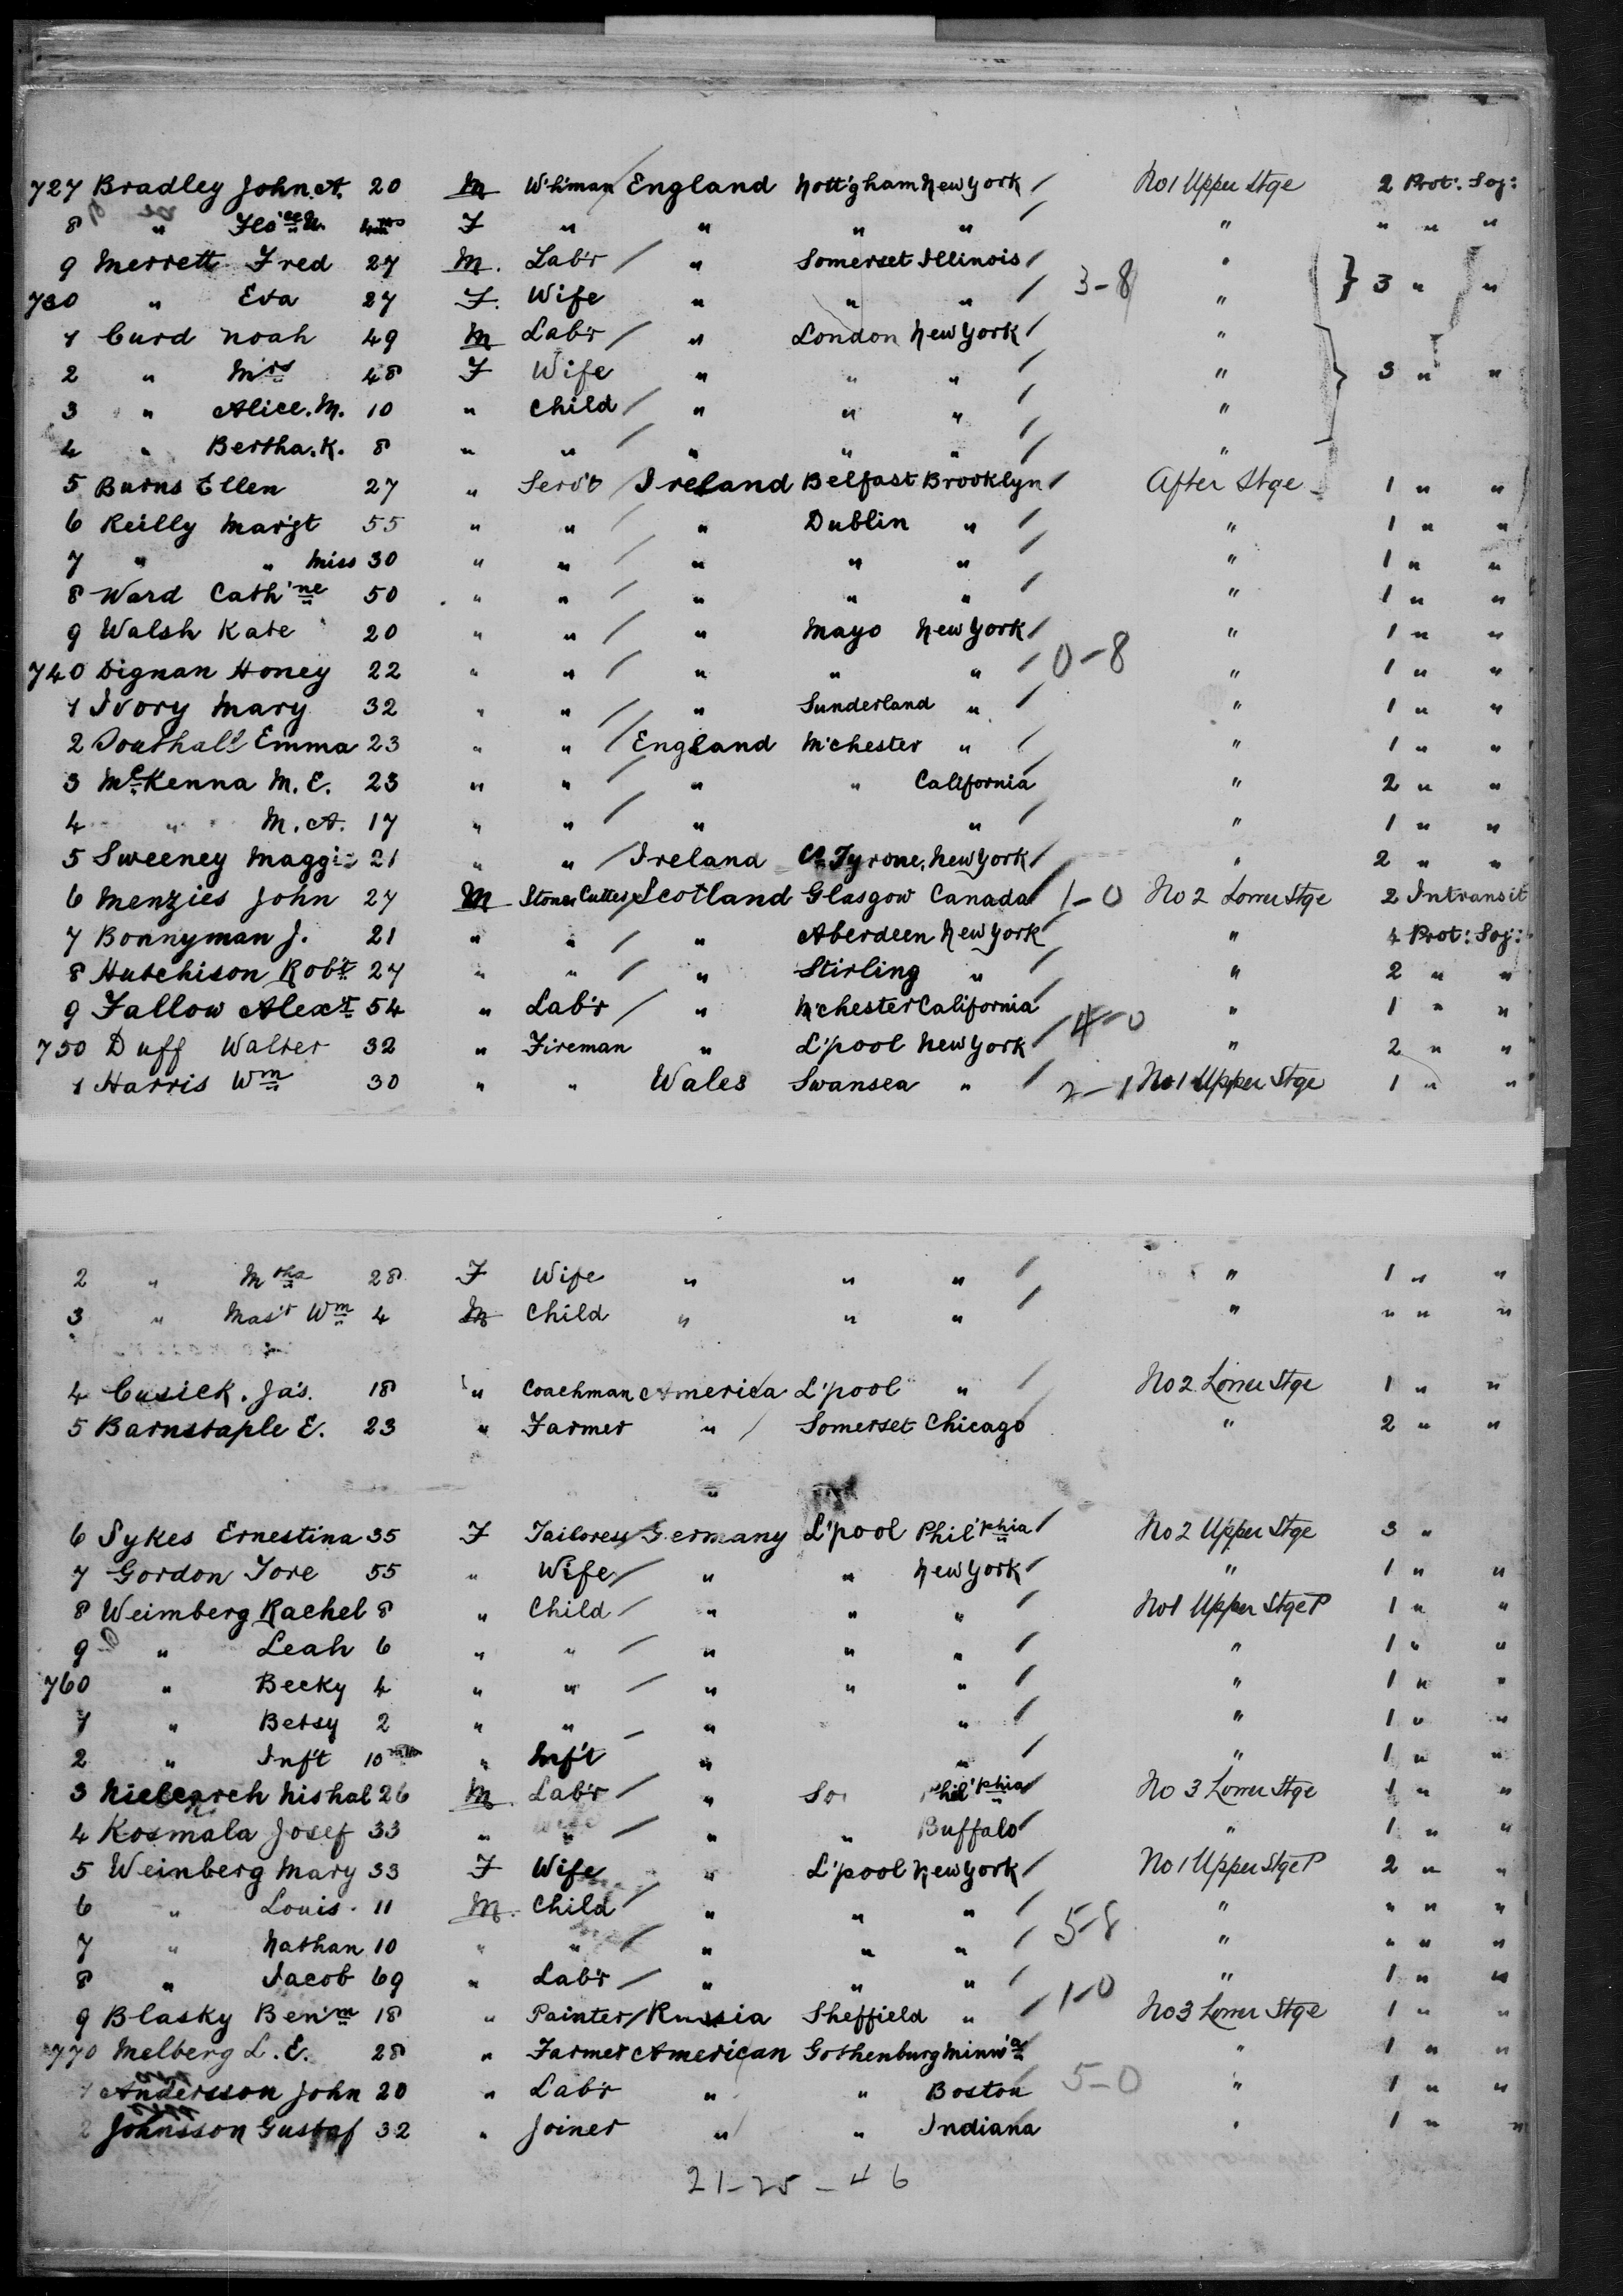 727 Bradley John. A. 20 M W'h'man England Nott'gham New York No 1 Upper Stge 2 Prot: Soj:
8 " Flo'ce 4 mos F " " " " " " " "
9 Merrett Fred 27 M. Lab'r " Somerset Illinois " 3 " "
730 " Eva 27 F. Wife " " " 3-8 "
1 Curd Noah 49 M Lab'r " London New York "
2 " Mrs 48 F Wife " " " " 3 " "
3 " Alice. M. 10 " Child " " " "
4 " Bertha. K. 8 " " " " " "
5 Burns Ellen 27 " Serv't Ireland Belfast Brooklyn After Stge 1 " "
6 Reilly Marg't 55 " " " Dublin " " 1 " "
7 " " Miss 30 " " " " " " 1 " "
8 Ward Cath'ne 50 " " " " " " 1 " "
9 Walsh Kate 20 " " " Mayo New York " 1 " "
740 Dignan Honey 22 " " " " " 0-8 " 1 " "
1 Ivory Mary 32 " " " Sunderland " " 1 " "
2 Southall Emma 23 " " England M'chester " " 1 " "
3 McKenna M. E. 23 " " " " California " 2 " "
4 " M. A. 17 " " " " " 1 " "
5 Sweeney Maggie 21 " " Ireland Co Tyrone, New York " 2 " "
6 Menzies John 27 M Stone Cutter Scotland Glasgow Canada 1-0 No 2 Lower Stge 2 Intransit
7 Bonnyman J. 21 " " " Aberdeen New York " 4 Prot: Soj:
8 Hutchison Rob't 27 " " " Stirling " " 2 " "
9 Fallow Alexr 54 " Lab'r " M'chester California " 1 " "
750 Duff Walter 32 " Fireman " L'pool New York 4-0 " 2 " "
1 Harris Wm 30 " " Wales Swansea " 2-1 No 1 Upper Stge 1 " "
2 " Mtha 28 F Wife " " " " 1 " "
3 " Mas'r Wm 4 M Child " " " " " " "
4 Cusick. Ja's. 18 " Coachman America L'pool " No 2 Lower Stge 1 " "
5 Barnstaple E. 23 " Farmer " Somerset Chicago " 2 " "
6 Sykes Ernestina 35 F Tailoress Germany L'pool Phil'phia No 2 Upper Stge 3 "
7 Gordon Tore 55 " Wife " " New York " 1 " "
8 Weimberg Rachel 8 " Child " " " No 1 Upper Stge P 1 " "
9 " Leah 6 " " " " " " 1 " "
760 " Becky 4 " " " " " " 1 " "
1 " Betsy 2 " " " " " 1 " "
2 " Inf't 10 " Inf't " " " 1 " "
3 Nishal 26 M Lab'r " Phil'phia No 3 Lower Stge 1 " "
4 Kosmala Josef 33 " " " " Buffalo " 1 " "
5 Weinberg Mary 33 F Wife " L'pool New York No 1 Upper Stge P 2 " "
6 " Louis. 11 M. Child " " " " " " "
7 " Nathan 10 " " " " " 5-8 " " " "
8 " Jacob 69 " Lab'r " " " " 1 " "
9 Blasky Ben'm 18 " Painter Russia Sheffield " 1-0 No 3 Lower Stge 1 " "
770 Melberg L. E. 28 " Farmer American Gothenburg Minn'a " 1 " "
1 Andersson John 20 " Lab'r " " Boston 5-0 " 1 " "
2 Johnsson Gustaf 32 " Joiner " " Indiana " 1 " "
21-25-46